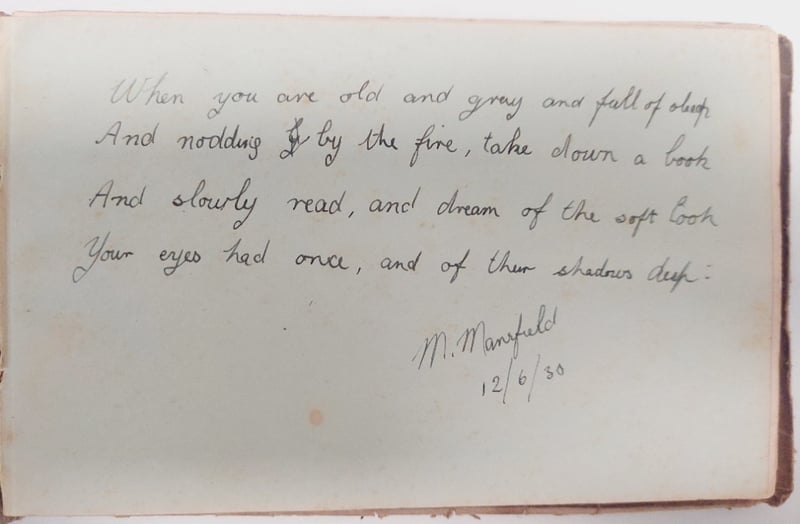 When you are old and gray and full of sleep
And nodding by the fire, take down a book
And slowly read, and dream of the soft look
Your eyes had once, and of their shadows deep:
M. Mansfield
12/6/30